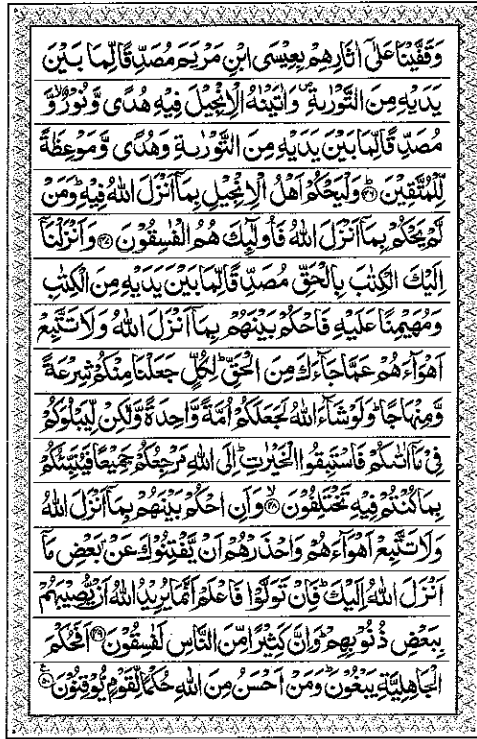 وَقَفَّيْنَا عَلٰٓى اٰثَارِهِمْ بِعِيْسَى ابْنِ مَرْيَمَ مُصَدِّقًا لِّمَا بَيْنَ
يَدَيْهِ مِنَ التَّوْرٰىةِ ۪ وَاٰتَيْنٰهُ الْاِنْجِيْلَ فِيْهِ هُدًى وَّنُوْرٌ ۙ وَّ
مُصَدِّقًا لِّمَا بَيْنَ يَدَيْهِ مِنَ التَّوْرٰىةِ وَهُدًى وَّمَوْعِظَةً
لِّلْمُتَّقِيْنَ ؕ۝۴۶ وَلْيَحْكُمْ اَهْلُ الْاِنْجِيْلِ بِمَاۤ اَنْزَلَ اللّٰهُ فِيْهِ ؕ وَمَنْ
لَّمْ يَحْكُمْ بِمَاۤ اَنْزَلَ اللّٰهُ فَاُولٰٓئِكَ هُمُ الْفٰسِقُوْنَ ۝۴۷ وَاَنْزَلْنَاۤ
اِلَيْكَ الْكِتٰبَ بِالْحَقِّ مُصَدِّقًا لِّمَا بَيْنَ يَدَيْهِ مِنَ الْكِتٰبِ
وَمُهَيْمِنًا عَلَيْهِ فَاحْكُمْ بَيْنَهُمْ بِمَاۤ اَنْزَلَ اللّٰهُ وَلَا تَتَّبِعْ
اَهْوَآءَهُمْ عَمَّا جَآءَكَ مِنَ الْحَقِّ ؕ لِكُلٍّ جَعَلْنَا مِنْكُمْ شِرْعَةً
وَّمِنْهَاجًا ؕ وَلَوْ شَآءَ اللّٰهُ لَجَعَلَكُمْ اُمَّةً وَّاحِدَةً وَّلٰكِنْ لِّيَبْلُوَكُمْ
فِيْ مَاۤ اٰتٰىكُمْ فَاسْتَبِقُوا الْخَيْرٰتِ ؕ اِلَى اللّٰهِ مَرْجِعُكُمْ جَمِيْعًا فَيُنَبِّئُكُمْ
بِمَا كُنْتُمْ فِيْهِ تَخْتَلِفُوْنَ ۙ۝۴۸ وَاَنِ احْكُمْ بَيْنَهُمْ بِمَاۤ اَنْزَلَ اللّٰهُ
وَلَا تَتَّبِعْ اَهْوَآءَهُمْ وَاحْذَرْهُمْ اَنْ يَّفْتِنُوْكَ عَنْۢ بَعْضِ مَاۤ
اَنْزَلَ اللّٰهُ اِلَيْكَ ؕ فَاِنْ تَوَلَّوْا فَاعْلَمْ اَنَّمَا يُرِيْدُ اللّٰهُ اَنْ يُّصِيْبَهُمْ
بِبَعْضِ ذُنُوْبِهِمْ ؕ وَاِنَّ كَثِيْرًا مِّنَ النَّاسِ لَفٰسِقُوْنَ ۝۴۹ اَفَحُكْمَ
الْجَاهِلِيَّةِ يَبْغُوْنَ ؕ وَمَنْ اَحْسَنُ مِنَ اللّٰهِ حُكْمًا لِّقَوْمٍ يُّوْقِنُوْنَ ۝۵۰ ع